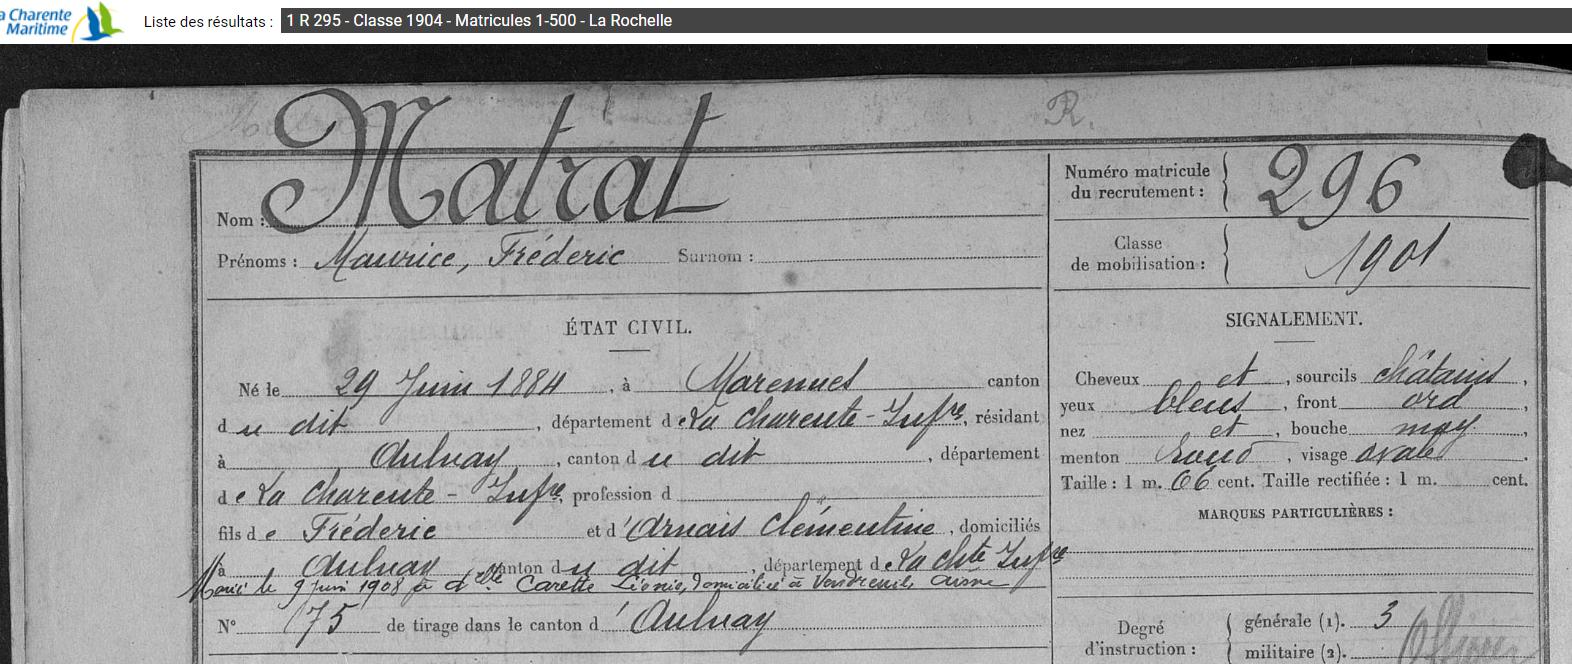 La Charente
Maritime
Liste des résultats : 1 R 295 - Classe 1904 - Matricules 1-500 - La Rochelle
R.
Nom : Matrat
Prénoms : Maurice, Fréderic Surnom :
Numéro matricule
du recrutement : 296
Classe
de mobilisation : 1901
ÉTAT CIVIL.
Né le 29 Juin 1884, à Marennes canton
du dit, département de La Charente-Infre, résidant
à Aulnay, canton du dit, département
de La Charente-Infre, profession d
fils de Fréderic et d'Arnais Clémentine, domiciliés
à Aulnay canton du dit, département de La Chte Infre
Marié le 9 juin 1908 à dlle Carette Léonie, domiciliée à Aisne
N° 75 de tirage dans le canton d'Aulnay
SIGNALEMENT.
Cheveux et, sourcils châtains,
yeux bleus, front ord,
nez et, bouche moy.,
menton rond, visage ovale.
Taille : 1 m. 66 cent. Taille rectifiée : 1 m. cent.
MARQUES PARTICULIÈRES :
Degré
d'instruction :
générale (1). 3
militaire (2).